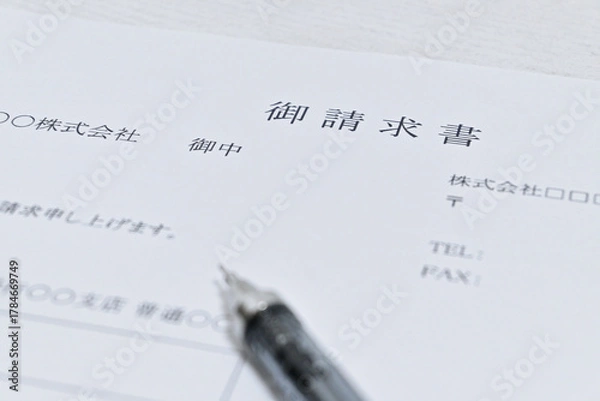 御請求書
〇〇株式会社 御中
株式会社□□□
〒
請求申し上げます。
TEL:
FAX:
〇〇支店 普通〇〇
Adobe Stock | #1784669749